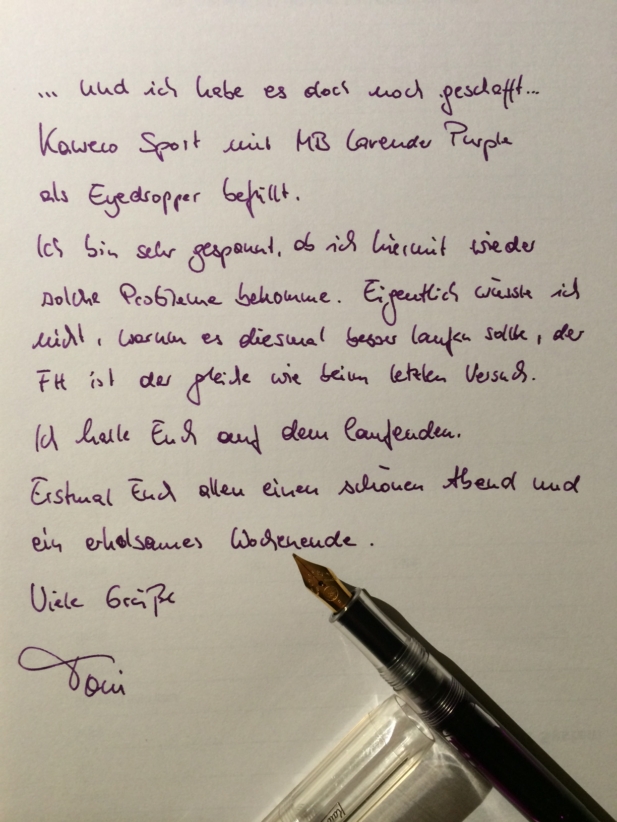 ... und ich habe es doch noch geschafft...
Kaweco Sport mit MB Lavender Purple
als Eyedropper befüllt.
Ich bin sehr gespannt, ob ich hiermit wieder
solche Probleme bekomme. Eigentlich wüsste ich
nicht, warum es diesmal besser laufen sollte, der
FH ist der gleiche wie beim letzten Versuch.
Ich halte Euch auf dem laufenden.
Erstmal Euch allen einen schönen Abend und
ein erholsames Wochenende.
Viele Grüße
Toni